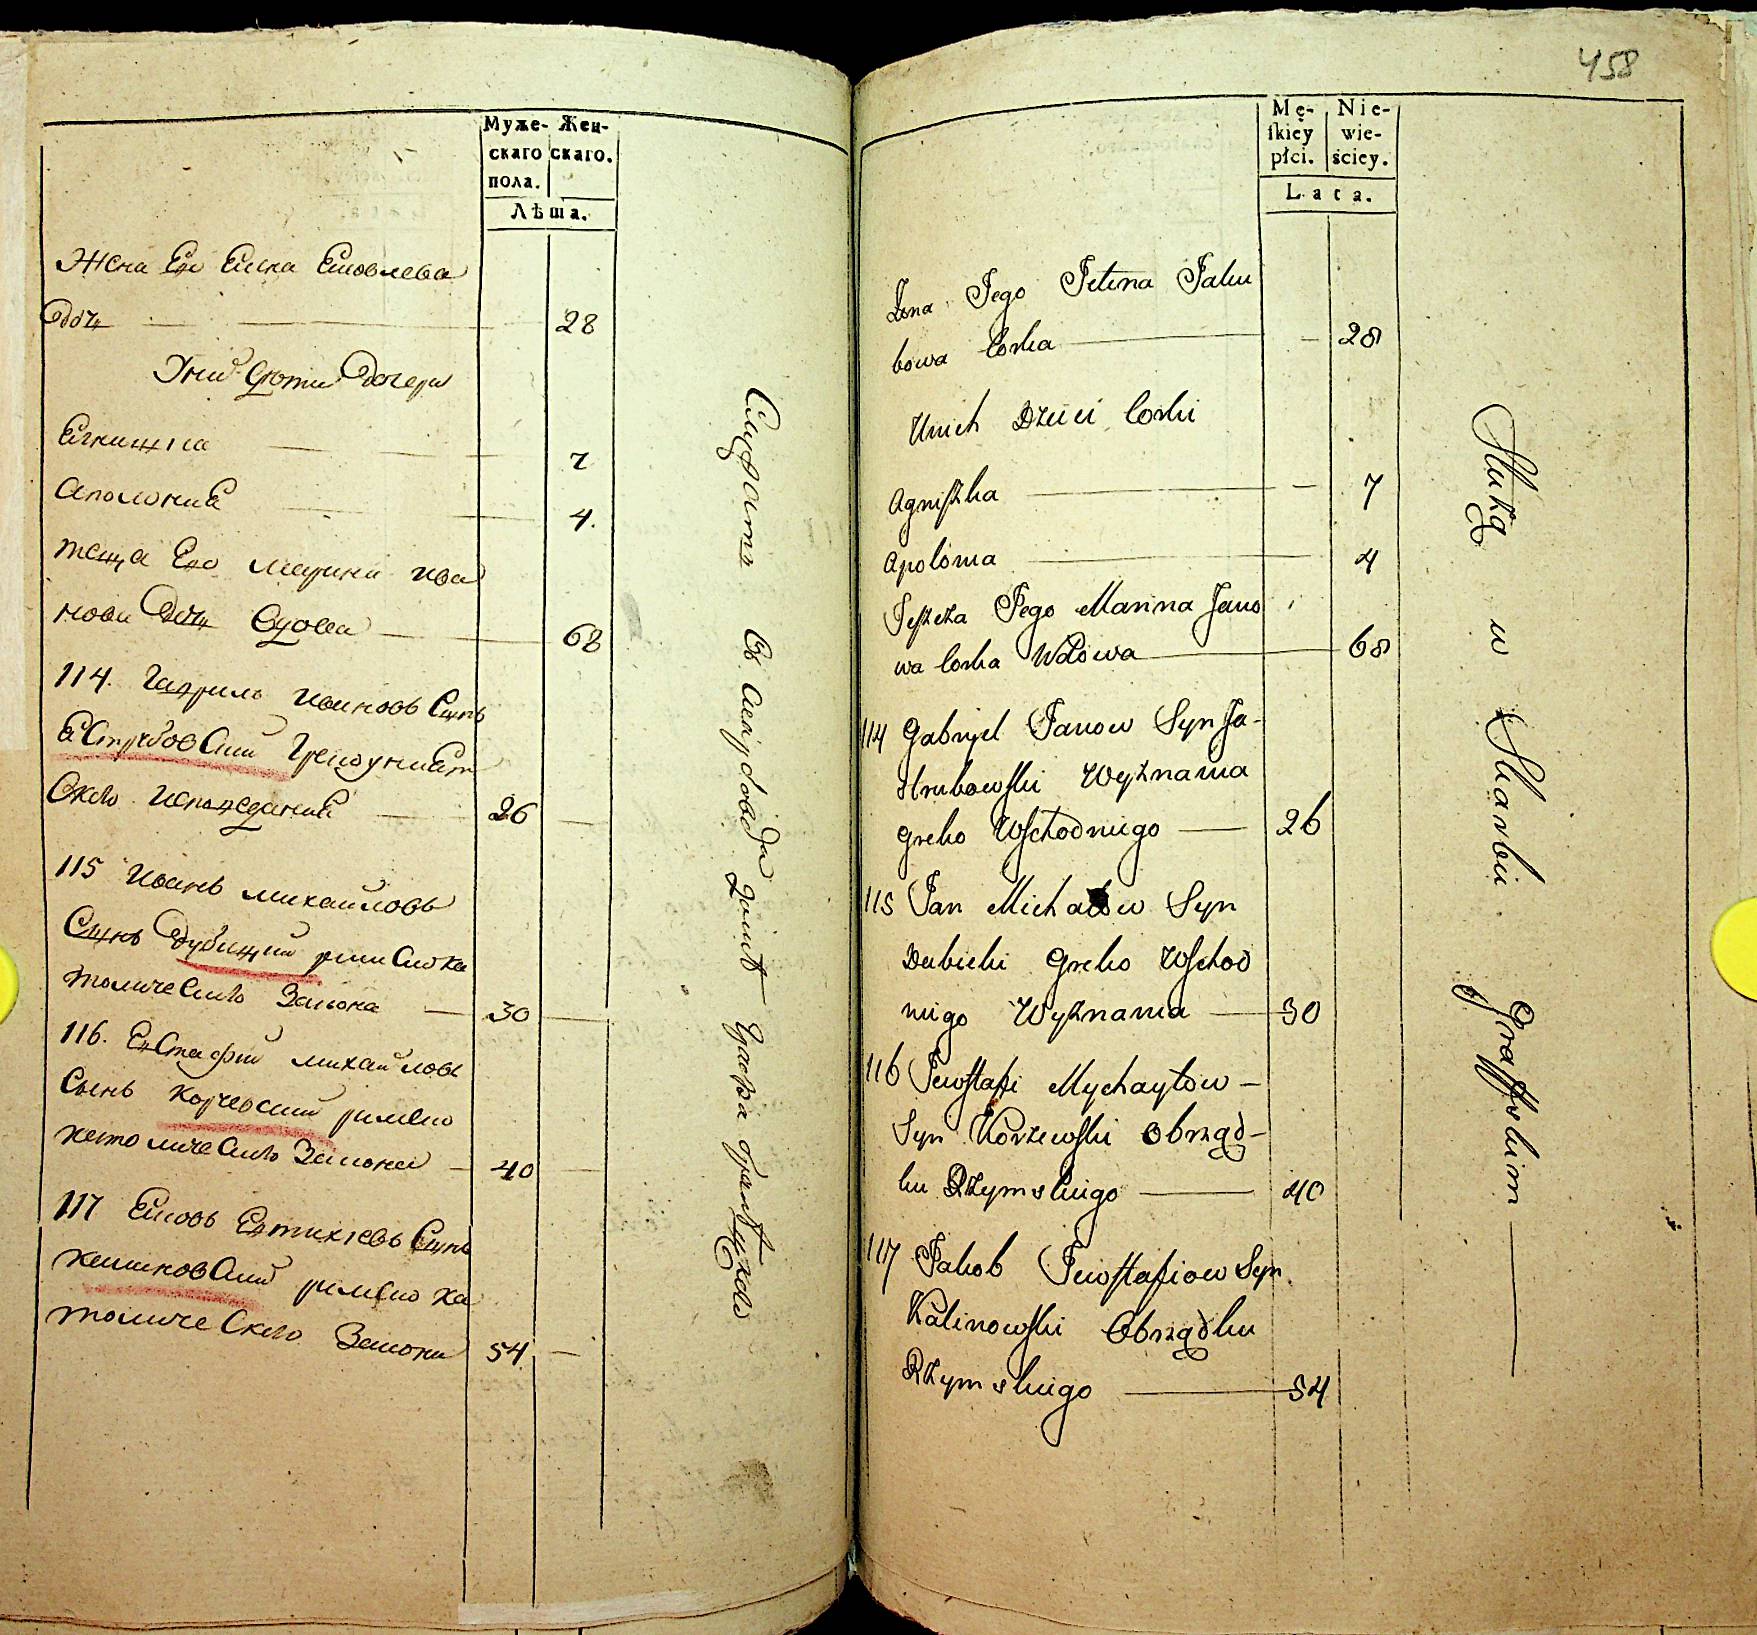 Муже- Жен-
скаго скаго.
пола.
Лѣта.
Жена Его Елена Яковлева
дочь 28
У них дѣти дочери
Агнишка 7
Аполония 4.
теща Его Марина Ива
нова дочь вдова 68
114. Гаврило Ивановъ Сынъ
Яструбовский Греко униатъ
скаго исповедания 26
115 Иванъ Михайловъ
Сынъ Дубицкий римско ка
толическаго Закона 30
116. Евстафий Михайловъ
Сынъ Корчевский римско
католическаго Закона 40
117 Яковъ Евтихиевъ Сынъ
Калиновский римско ка
толическаго Закона 54
458
Mę- Nie-
skiey wie-
płci. ściey.
Lata.
Zona Jego Jelena Jaku
bowa Corka 28
U nich Dzieci Corki
Agniszka 7
Apolonia 4
Jego Marina Jano
wa Corka Wdowa 68
114 Gabryel Janow Syn Ja-
strubowski Wyznania
Greko Wschodniego 26
115 Jan Michałow Syn
Dubicki Greko Wschod
niego Wyznania 30
116 Jewstafi Mychayłow
Syn Korzewski Obrząd-
ku Rzymskiego 40
117 Jakob Jewstafiow Syn
Kalinowski Obrządku
Rzymskiego 54